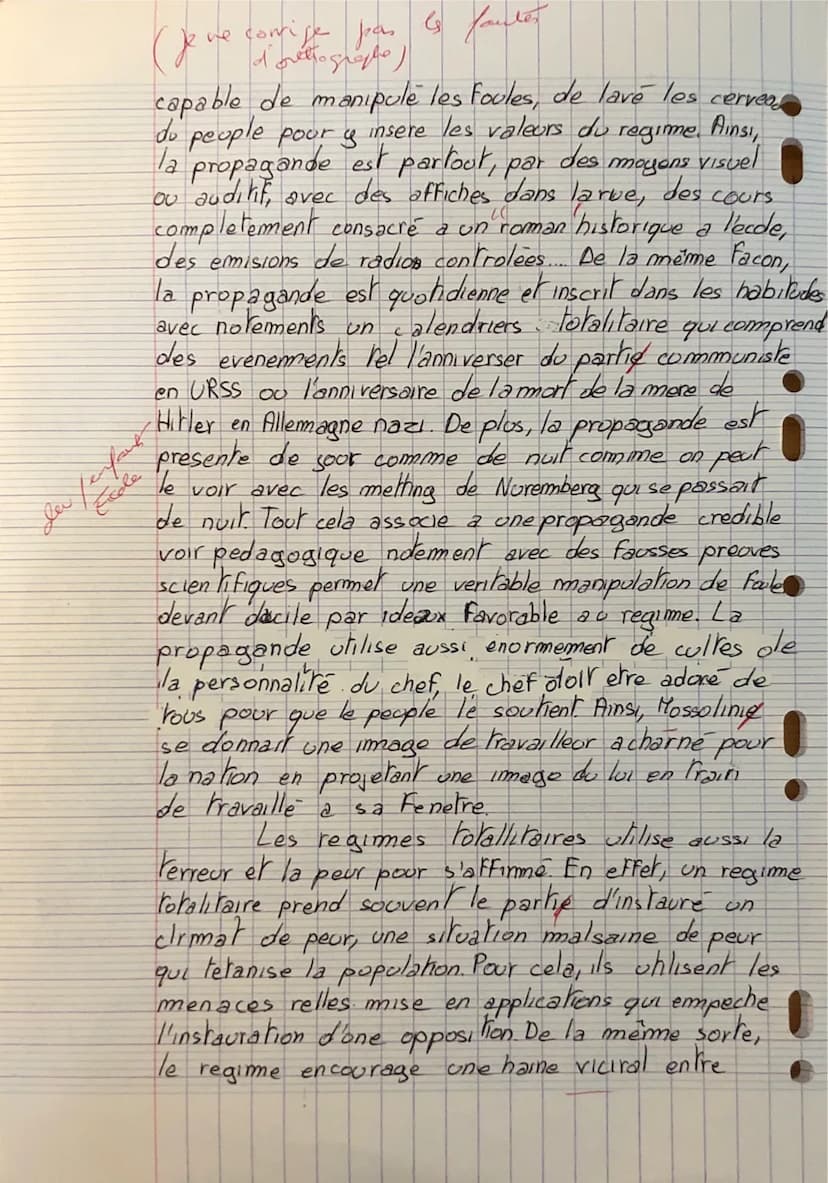 (je ne corrige pas les fautes
d'orthographe)
capable de manipulé les foules, de lavé les cervea
du people pour y insere les valeurs du regime. Ainsi,
la propagande est partout, par des moyens visuel
ou auditif, avec des affiches dans la rue, des cours
completement consacré a un "roman" historique a l'école,
des emisions de radios controlées... De la même facon,
la propagande est quotidienne et inscrit dans les habitudes
avec notements un calendriers totalitaire qui comprend
des evenements tel l'anniverser du partie communiste
en URSS ou l'anniversaire de la mort de la mere de
Hitler en Allemagne nazi. De plus, la propagande est
Jeu / enfant
École
presente de jour comme de nuit comme on peut
le voir avec les metting de Nuremberg qui se passait
de nuit. Tout cela associe a une propagande credible
voir pedagogique notement avec des fausses preuves
scientifiques permet une veritable manipulation de foule
devant docile par ideaux favorable au regime. La
propagande utilise aussi enormement de cultes de
la personnalité du chef, le chef doit etre adoré de
tous pour que le people le soutient. Ainsi, Mossolinie
se donnait une immage de travailleur acharné pour
la nation en projetant une image du lui en train
de travaillé a sa fenetre.
Les regimes totallitaires utilise aussi la
terreur et la peur pour s'affirmé. En effet, un regime
totalitaire prend souvent le partie d'instauré un
climat de peur, une situation malsaine de peur
qui tetanise la population. Pour cela, ils utilisent les
menaces relles mise en applications qui empeche
l'instauration d'une opposition. De la même sorte,
le regime encourage une haine viciral entre